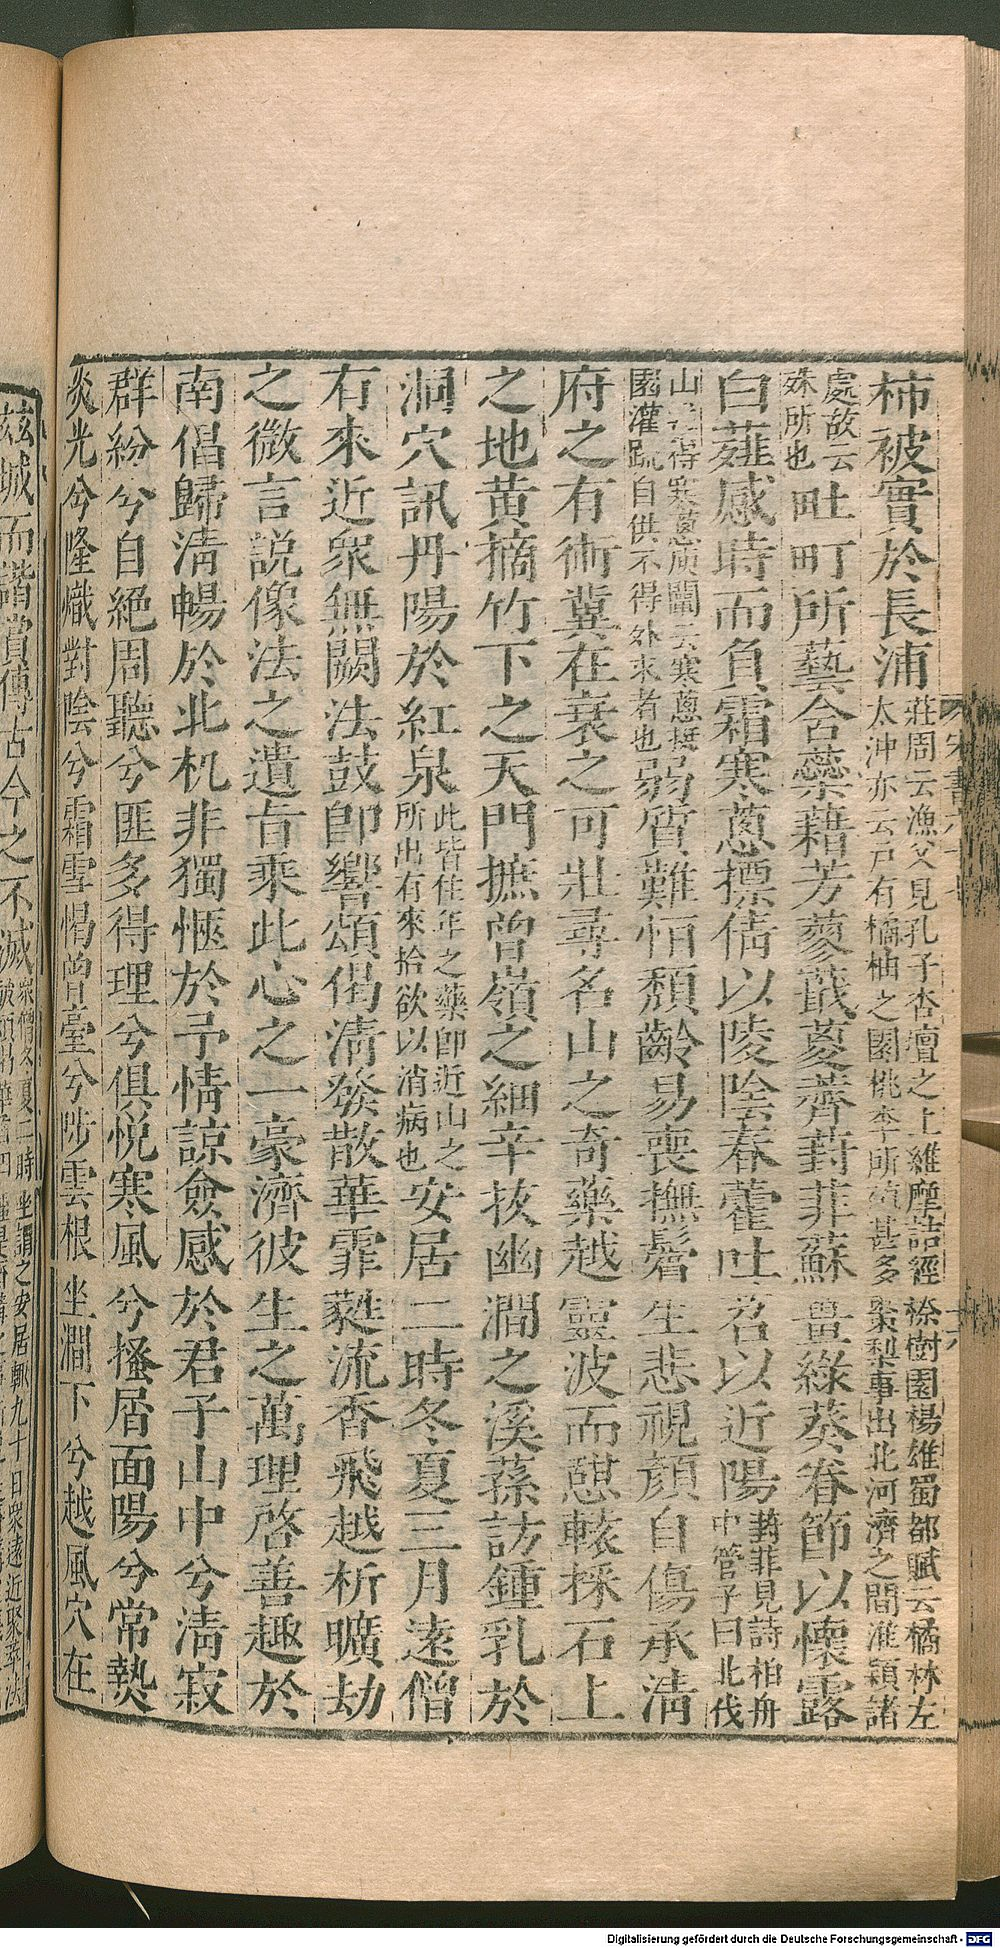 柿被實於長浦莊周云漁父見孔子杏壇之上維摩詰經㮈樹園楊雄蜀都賦云橘林左太沖亦云戸有橘柚之園桃李所殖甚多棗梨事出北河濟之間淮潁諸
處故云殊所也畦町所藝含蘂藉芳蓼蕺葼薺葑菲蘇薑綠葵眷節以懷露
白薤感時而負霜寒葱摽倩以陵陰春藿吐苕以近陽葑菲見詩柏舟中管子曰北伐
山戎得寒葱庾闡云寒蔥挺園灌蔬自供不得外求者也弱質難恒頹齡易喪撫鬢生悲視顏自傷承淸
府之有術冀在衰之可壯尋名山之奇藥越靈波而憇轅採石上
之地黃摘竹下之天門摭曽嶺之細辛拔幽澗之溪蓀訪鍾乳於
洞穴訊丹陽於紅泉此皆住年之藥即近山之所出有來拾欲以消病也安居二時冬夏三月逺僧
有來近眾無闕法鼓卽響頌偈淸發散華霏蕤流香飛越析曠劫
之微言説像法之遺旨乘此心之一豪濟彼生之萬理啓善趣於
南倡歸淸暢於北机非獨愜於予情諒僉感於君子山中兮淸寂
群紛兮自絕周聽兮匪多得理兮俱悅寒風兮搔屑面陽兮常熱
炎光兮隆熾對陰兮霜雪愒曽臺兮陟雲根坐澗下兮越風穴在
茲城而諧賞傳古今之不滅衆僧冬夏二時坐謂之安居輒九十日衆逺近聚萃法
宋書六十七
十六
Digitalisierung gefördert durch die Deutsche Forschungsgemeinschaft - DFG